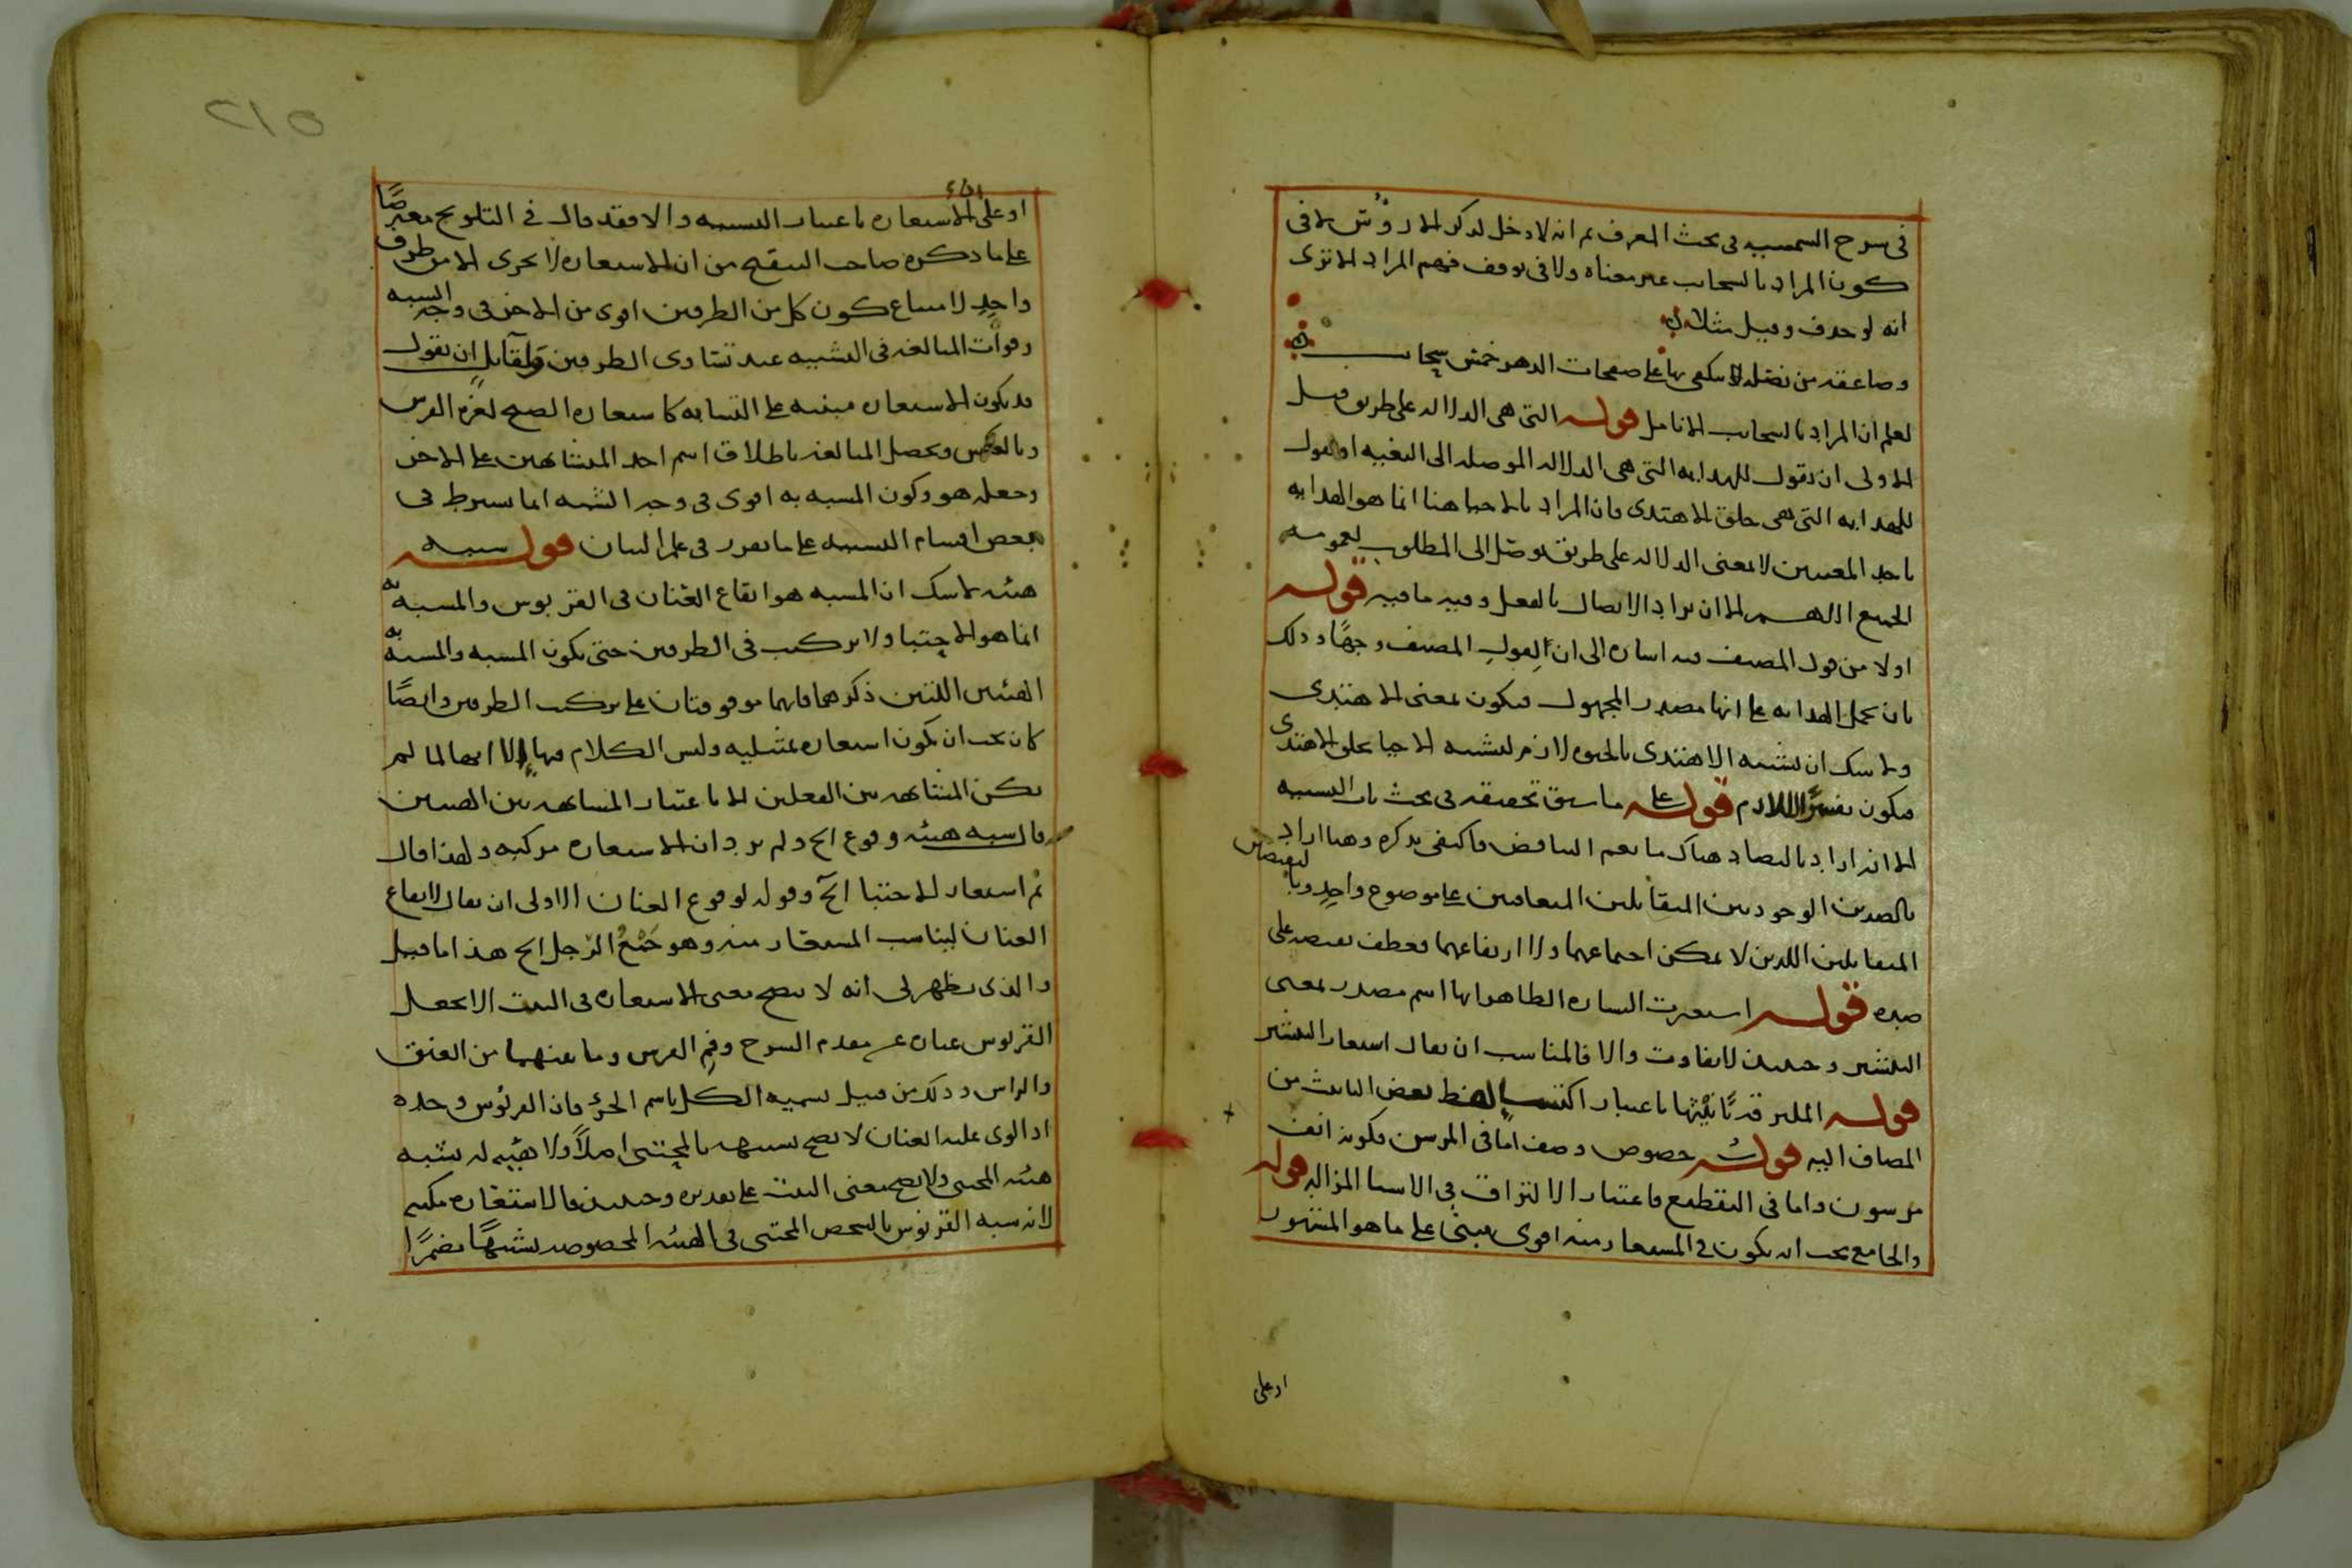 في شرح الشمسية في بحث المعرف ثم انه لا دخل لذكر الارؤس لا في
كون المراد بالسحاب غير معناه ولا في توقف فهم المراد الا ترى
انه لو حذف وقيل مثلا
وصاعقة من نصله تنكفى بها على صفحات الدهر خمس سحائب
لعلم ان المراد بالسحاب الانامل قوله التي هي الدلالة على طريق قيل
الاولى ان يقول للهداية التي هي الدلالة الموصلة الى البغية او يقول
للهداية التي هي خلق الاهتدى فان المراد بالاحيا هنا انما هو الهداية
باحد المعنيين لا بمعنى الدلالة على طريق يوصل الى المطلوب لعمومه
الجميع اللهم الا ان يراد الايصال بالفعل وفيه ما فيه قوله
اولا من قول المصنف فيه اشارة الى ان لقول المصنف وجها وذلك
بان يحمل الهداية على انها مصدر المجهول فيكون بمعنى الاهتدى
ولا شك ان تشبيه الاهتدى بالحيوة لازم لتشبيه الاحيا بخلق الاهتدى
فيكون تفسيرا باللازم قوله على ما سبق تحقيقه في بحث باب التشبيه
الا انه اراد بالتضاد هناك ما يعم التناقض فاكتفى بذكره وههنا اراد
بالضدين الوجوديين المتقابلين المتعاقبين على موضوع واحد وبالنقيضين
المتقابلين اللذين لا يمكن اجتماعهما ولا ارتفاعهما فعطف نقيضه على
ضده قوله استعيرت البشارة الظاهر انها اسم مصدر بمعنى
التبشير وحينئذ لا تفاوت والا فالمناسب ان يقال استعار التبشير
قوله الملبر قد تانيثها باعتبار اكتساب لفظ بعض التانيث من
المضاف اليه قوله خصوص وصف اما في المرسن فكونه انف
مرسون واما في التقطيع فاعتبار الالتزاق في الاشيا المزالة قوله
والجامع يجب ان يكون في المستعار منه اقوى مبنى على ما هو المشهور
او على
٢١٥
او على ان الاستعارة باعتبار التشبيه والا فقد قال في التلويح معترضا
على ما ذكره صاحب التنقيح من ان الاستعارة لا تجرى الا من طرف
واحد لامتناع كون كل من الطرفين اقوى من الاخر في وجه الشبه
وفوات المبالغة في التشبيه عند تساوى الطرفين ولقائل ان يقول
قد يكون الاستعارة مبنية على التشابه كاستعارة الصبح لغرة الفرس
وبالعكس ويحصل المبالغة باطلاق اسم احد المتشابهين على الاخر
وجعله هو وكون المشبه به اقوى في وجه الشبه انما يشترط في
بعض اقسام التشبيه على ما تقرر في علم البيان قوله شبه
هيئة لا شك ان المشبه هو ايقاع العنان في القربوس والمشبه به
انما هو الاحتبا ولا تركيب في الطرفين حتى يكون المشبه والمشبه به
الهيئتين اللتين ذكرهما فانهما موقوفتان على تركيب الطرفين وايضا
كان يجب ان يكون استعارة تمثيلية وليس الكلام فيها الا انها لما لم
يكن المشابهة بين الفعلين الا باعتبار المشابهة بين الهيئتين
قال شبه هيئة وقوع الخ ولم يرد ان الاستعارة مركبة ولهذا قال
ثم استعار الاحتبا الخ وقوله لوقوع العنان الاولى ان يقال لايقاع
العنان ليناسب المستعار منه وهو جمع الرجل الخ هذا ما قيل
والذى يظهر لى انه لا يصح معنى الاستعارة في البيت الا بجعل
القربوس عبارة عن مقدم السرج وفم الفرس وما بينهما من العنق
والراس وذلك من قبيل تسمية الكل باسم الجزء فان القربوس وحده
اذا لوى عليه العنان لا يصح تشبيهه بالمحتبى اصلا ولا هيئة له تشبه
هيئة المحتبى ولا يصح معنى البيت على تقديره وحينئذ فالاستعارة مكنية
لانه شبه القربوس بالشخص المحتبى في الهيئة المخصوصة تشبيها مضمرا